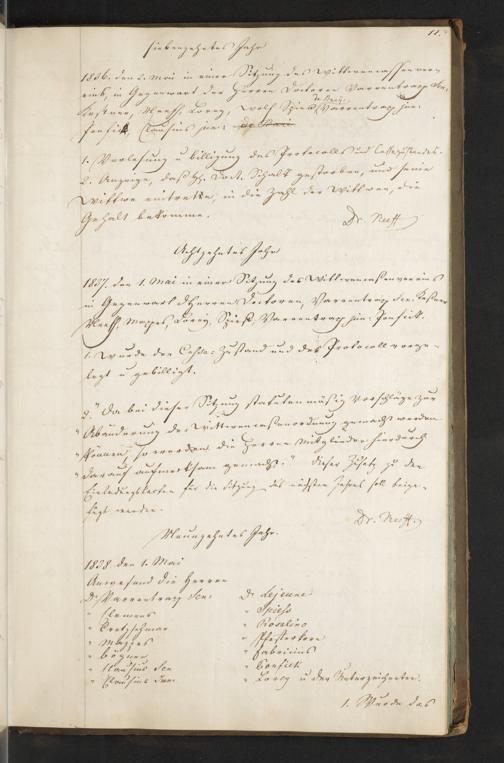 11.
Siebenzehntes Jahr
1836. den 2. Mai in einer Sitzung des Wittwencassenver-
eins, in Gegenwart der Herren Doctoren Varrentrapp sen.
Kestner, Neeff, Lorey, Wolf, Spiess, Varrentrapp jun.
Ponfick, Clausius jun.
1. Vorlesung u billigung des Protocolls und Cassezustandes.
2. Anzeige, daß H. Doct. Schalk gestorben, und seine
Wittwe eintrette, in die Zahl der Wittwen, die
Gehalt bekomme.
Dr. Neeff
Achtzehntes Jahr
1837. den 1. Mai in einer Sitzung des Wittwencassenvereins
in Gegenwart d Herren Doctoren, Varrentrapp sen. Kestner
Neeff, Mappes, Lorey, Spiess, Varrentrapp jun. Ponfick.
1. Wurde der Cassa-Zustand und das Protocoll vorge-
legt u gebilligt.
2. "Da bei dieser Sitzung statutenmäßig Vorschläge zur
" Abänderung der Wittwencassenordnung gemacht werden
" können, so werden die Herren Mitglieder hierdurch
" darauf aufmerksam gemacht." Dieser Zusatz zu den
Einladungskarten für die Sitzung des nächsten Jahres soll beige-
fügt werden.
Dr. Neeff.
Neunzehntes Jahr.
1838 den 1. Mai
Anwesend die Herren
Dr. Varrentrapp Sen.
" Clemens
" Kretzschmar
" Mappes
" Bögner
" Clausius Sen
" Clausius Jun.
Dr Lejeune
" Spiess
" Roselino
" Pfefferkorn
" Fabricius
" Ponfick
" Lorey u der Unterzeichnete.
1. Wurde das